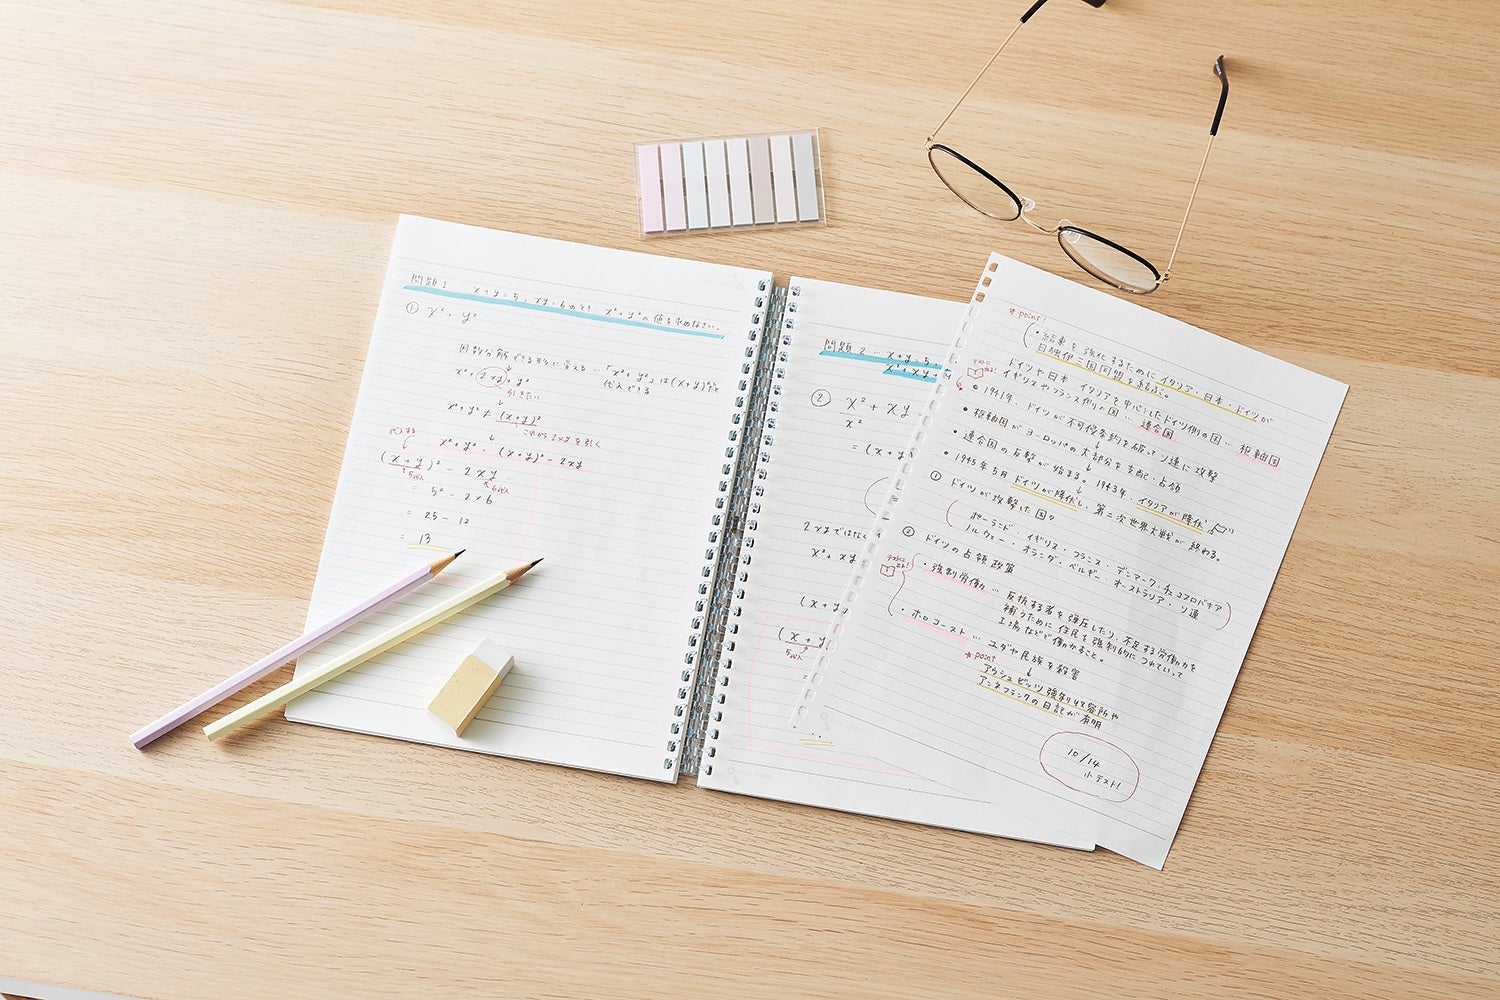 問題1. x+y=5, xy=6のとき、x²+y²の値を求めなさい。
① x²+y²
因数分解できる形に変える…「x²+y²」は(x+y)²だと
代入できる
x²+2xy+y²
引きたい
x²+y² ≠ (x+y)²
これから2xyを引く
代入する
x²+y² = (x+y)²-2xy
(x+y)²-2xy
5代入
6代入
= 5²-2×6
= 25-12
= 13
問題2… x+y=5,
x²+xy+
② x²+xy
x²
= (x+y
2xyではなく
x²+xy
(x+y
(x+y
5代入
* point!
・結束を強化するためにイタリア・日本・ドイツが
日独伊三国同盟を結ぶ。
テストに出る!
ドイツや日本 イタリアを中心としたドイツ側の国… 枢軸国
イギリスやフランス側の国… 連合国
・1941年… ドイツが不可侵条約を破ってソ連に攻撃
・枢軸国がヨーロッパの大部分を支配・占領
・連合国の反撃が始まる。1943年、イタリアが降伏
・1945年5月ドイツが降伏し、第二次世界大戦が終わる。
① ドイツが攻撃した国々
ポーランド・イギリス・フランス・デンマーク・チェコスロバキア
ノルウェー・オランダ・ベルギー・オーストラリア・ソ連
② ドイツの占領政策
テストに出る!
・強制労働… 反抗する者を強圧したり、不足する労働力を
補うために住民を強制的につれていって
工場などで働かすこと。
・ホロコースト… ユダヤ民族を殺害
* point
アウシュビッツ強制収容所や
アンネフランクの日記が有明
10/14
小テスト!